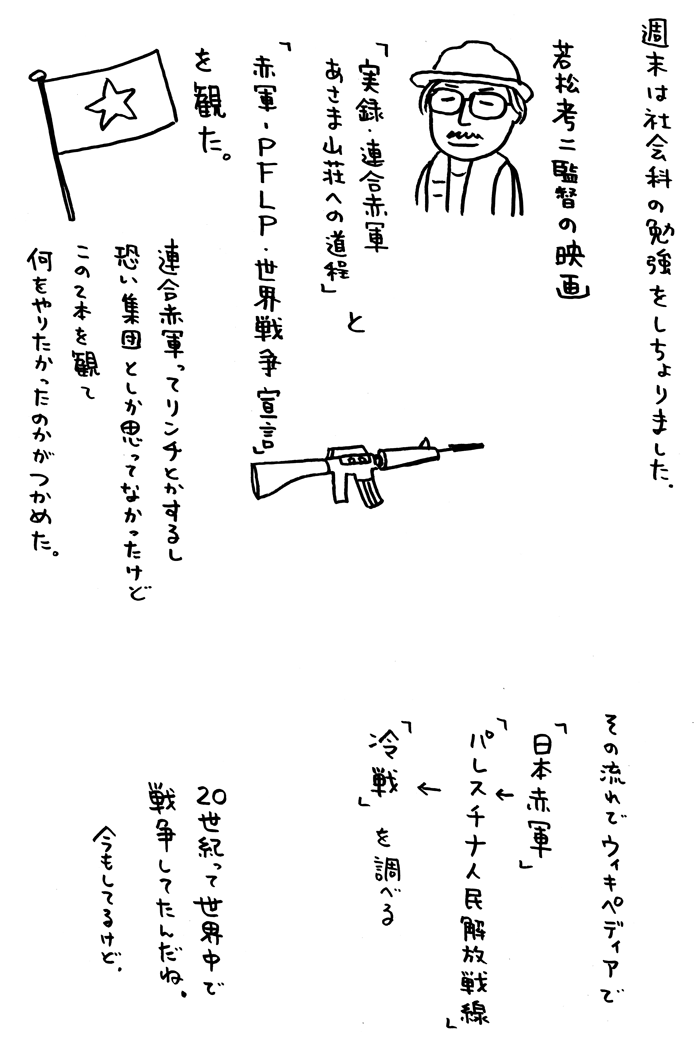 週末は社会科の勉強をしちょりました.
若松考二監督の映画
「実録・連合赤軍
あさま山荘への道程」
と
「赤軍-PFLP・世界戦争宣言」
を観た。
連合赤軍ってリンチとかするし
恐い集団としか思ってなかったけど
この2本を観て
何をやりたかったのかがつかめた。
その流れでウィキペディアで
「日本赤軍」
←
「パレスチナ人民解放戦線」
←
「冷戦」を調べる
20世紀って世界中で
戦争してたんだね.
今もしてるけど.